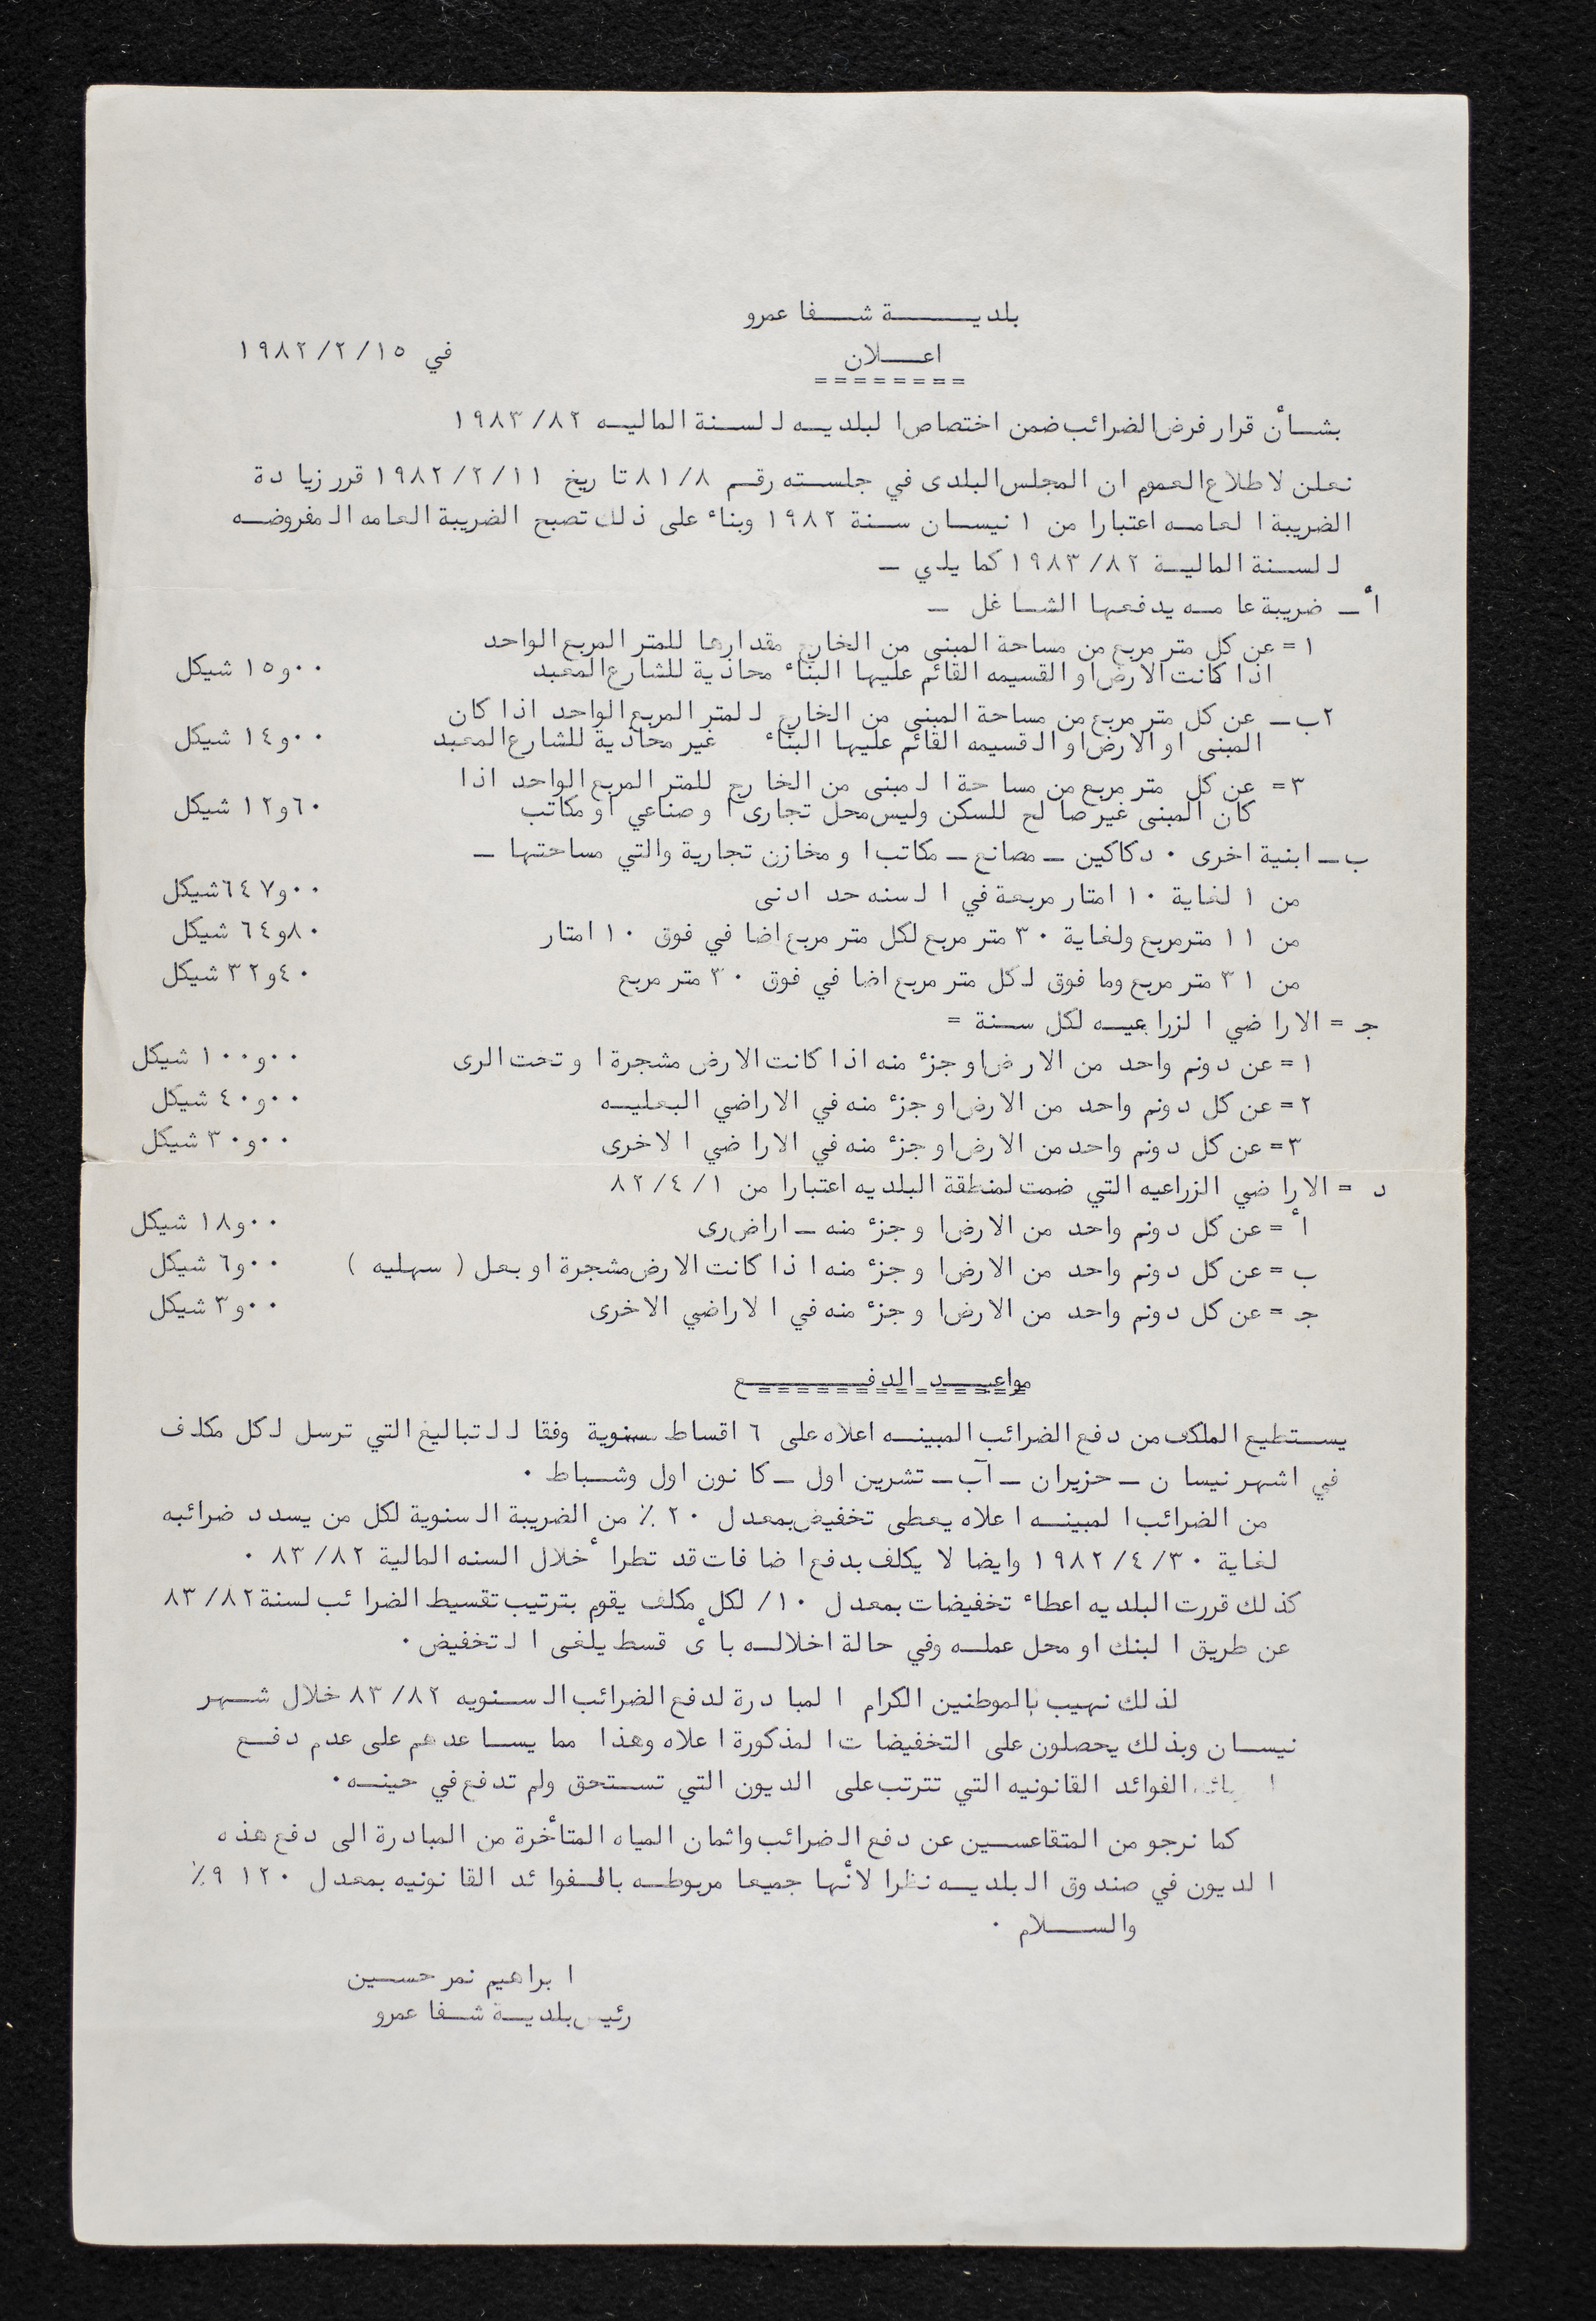 بلديــــة شــفا عمرو
في ١٩٨٢/٢/١٥
اعـــلان
========
بشــأن قرار فرض الضرائب ضمن اختصاص البلديــه للســنة الماليــه ١٩٨٣/٨٢
نعلن لاطلاع العموم ان المجلس البلدى في جلســته رقــم ٨١/٨ تاريخ ١٩٨٢/٢/١١ قرر زيادة
الضريبة العامــه اعتبارا من ١ نيســان ســنة ١٩٨٢ وبناء على ذلك تصبح الضريبة العامه المفروضــه
للســنة الماليــة ١٩٨٣/٨٢ كما يلي ـ
أ ـ ضريبة عامــه يدفعها الشــاغل ـ
١ = عن كل متر مربع من مساحة المبنى من الخارج مقدارها للمتر المربع الواحد
اذا كانت الارض او القسيمه القائم عليها البناء محاذية للشارع المعبد ١٥و٠٠ شيكل
٢ب ـ عن كل متر مربع من مساحة المبنى من الخارج للمتر المربع الواحد اذا كان
المبنى او الارض او القسيمه القائم عليها البناء غير محاذية للشارع المعبد ١٤و٠٠ شيكل
٣ = عن كل متر مربع من مساحة المبنى من الخارج للمتر المربع الواحد اذا
كان المبنى غير صالح للسكن وليس محل تجارى او صناعي او مكاتب ١٢و٦٠ شيكل
ب ـ ابنية اخرى ٠ دكاكين ـ مصانع ـ مكاتب او مخازن تجارية والتي مساحتها ـ
من ١ لغاية ١٠ امتار مربعة في السنه حد ادنى ٦٤٧و٠٠ شيكل
من ١١ متر مربع ولغاية ٣٠ متر مربع لكل متر مربع اضافي فوق ١٠ امتار ٦٤و٨٠ شيكل
من ٣١ متر مربع وما فوق لكل متر مربع اضافي فوق ٣٠ متر مربع ٣٢و٤٠ شيكل
جـ = الاراضي الزراعيــه لكل ســنة =
١ = عن دونم واحد من الارض او جزء منه اذا كانت الارض مشجرة او تحت الرى ١٠٠و٠٠ شيكل
٢ = عن كل دونم واحد من الارض او جزء منه في الاراضي البعليــه ٤٠و٠٠ شيكل
٣ = عن كل دونم واحد من الارض او جزء منه في الاراضي الاخرى ٣٠و٠٠ شيكل
د = الاراضي الزراعيه التي ضمت لمنطقة البلديه اعتبارا من ٨٢/٤/١
أ = عن كل دونم واحد من الارض او جزء منه ـ اراض رى ١٨و٠٠ شيكل
ب = عن كل دونم واحد من الارض او جزء منه اذا كانت الارض مشجرة او بعل ( سهليه ) ٦و٠٠ شيكل
جـ = عن كل دونم واحد من الارض او جزء منه في الاراضي الاخرى ٣و٠٠ شيكل
مواعيــد الدفــــع
===============
يســتطيع الملكف من دفع الضرائب المبينــه اعلاه على ٦ اقساط سنوية وفقا للتباليغ التي ترسل لكل مكلف
في اشهر نيسان ـ حزيران ـ آب ـ تشرين اول ـ كانون اول وشــباط ٠
من الضرائب المبينــه اعلاه يعطى تخفيض بمعدل ٢٠ ٪ من الضريبة السنوية لكل من يسدد ضرائبه
لغاية ١٩٨٢/٤/٣٠ وايضا لا يكلف بدفع اضافات قد تطرأ خلال السنه المالية ٨٣/٨٢ ٠
كذلك قررت البلديه اعطاء تخفيضات بمعدل ١٠/ لكل مكلف يقوم بترتيب تقسيط الضرائب لسنة ٨٣/٨٢
عن طريق البنك او محل عملــه وفي حالة اخلالــه بأى قسط يلغى التخفيض ٠
لذلك نهيب بالموطنين الكرام المبادرة لدفع الضرائب الســنويه ٨٣/٨٢ خلال شــهر
نيســان وبذلك يحصلون على التخفيضات المذكورة اعلاه وهذا مما يســاعدهم على عدم دفــع
الفوائد القانونيه التي تترتب على الديون التي تســتحق ولم تدفع في حينــه ٠
كما نرجو من المتقاعســين عن دفع الضرائب واثمان المياه المتأخرة من المبادرة الى دفع هذه
الديون في صندوق البلديــه نظرا لأنها جميعا مربوطــه بالــفوائد القانونيه بمعدل ١٢٠ ٩٪
والســـلام ٠
ابراهيم نمر حســين
رئيس بلديــة شــفا عمرو